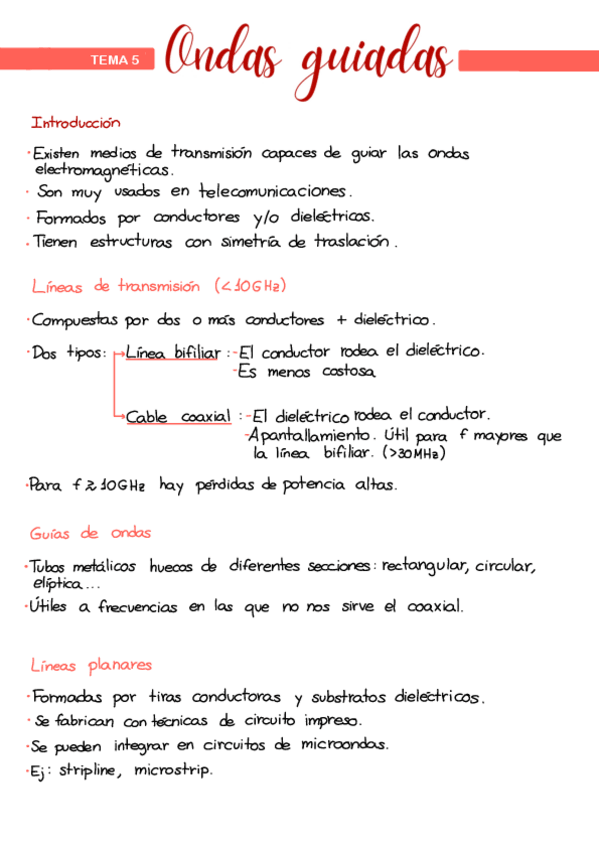 TEMA 5
Ondas guiadas
Introducción
· Existen medios de transmisión capaces de guiar las ondas
electromagnéticas.
· Son muy usados en telecomunicaciones.
· Formados por conductores y/o dieléctricos.
· Tienen estructuras con simetría de traslación.
Líneas de transmisión (<10GHz)
· Compuestas por dos o más conductores + dieléctrico.
· Dos tipos: → Línea bifiliar : - El conductor rodea el dieléctrico.
- Es menos costosa
→ Cable coaxial : - El dieléctrico rodea el conductor.
- Apantallamiento. Útil para f mayores que
la línea bifiliar. (>30MHz)
· Para f ≥ 10GHz hay pérdidas de potencia altas.
Guías de ondas
· Tubos metálicos huecos de diferentes secciones: rectangular, circular,
elíptica...
· Útiles a frecuencias en las que no nos sirve el coaxial.
Líneas planares
· Formadas por tiras conductoras y substratos dieléctricos.
· Se fabrican con técnicas de circuito impreso.
· Se pueden integrar en circuitos de microondas.
· Ej: stripline, microstrip.